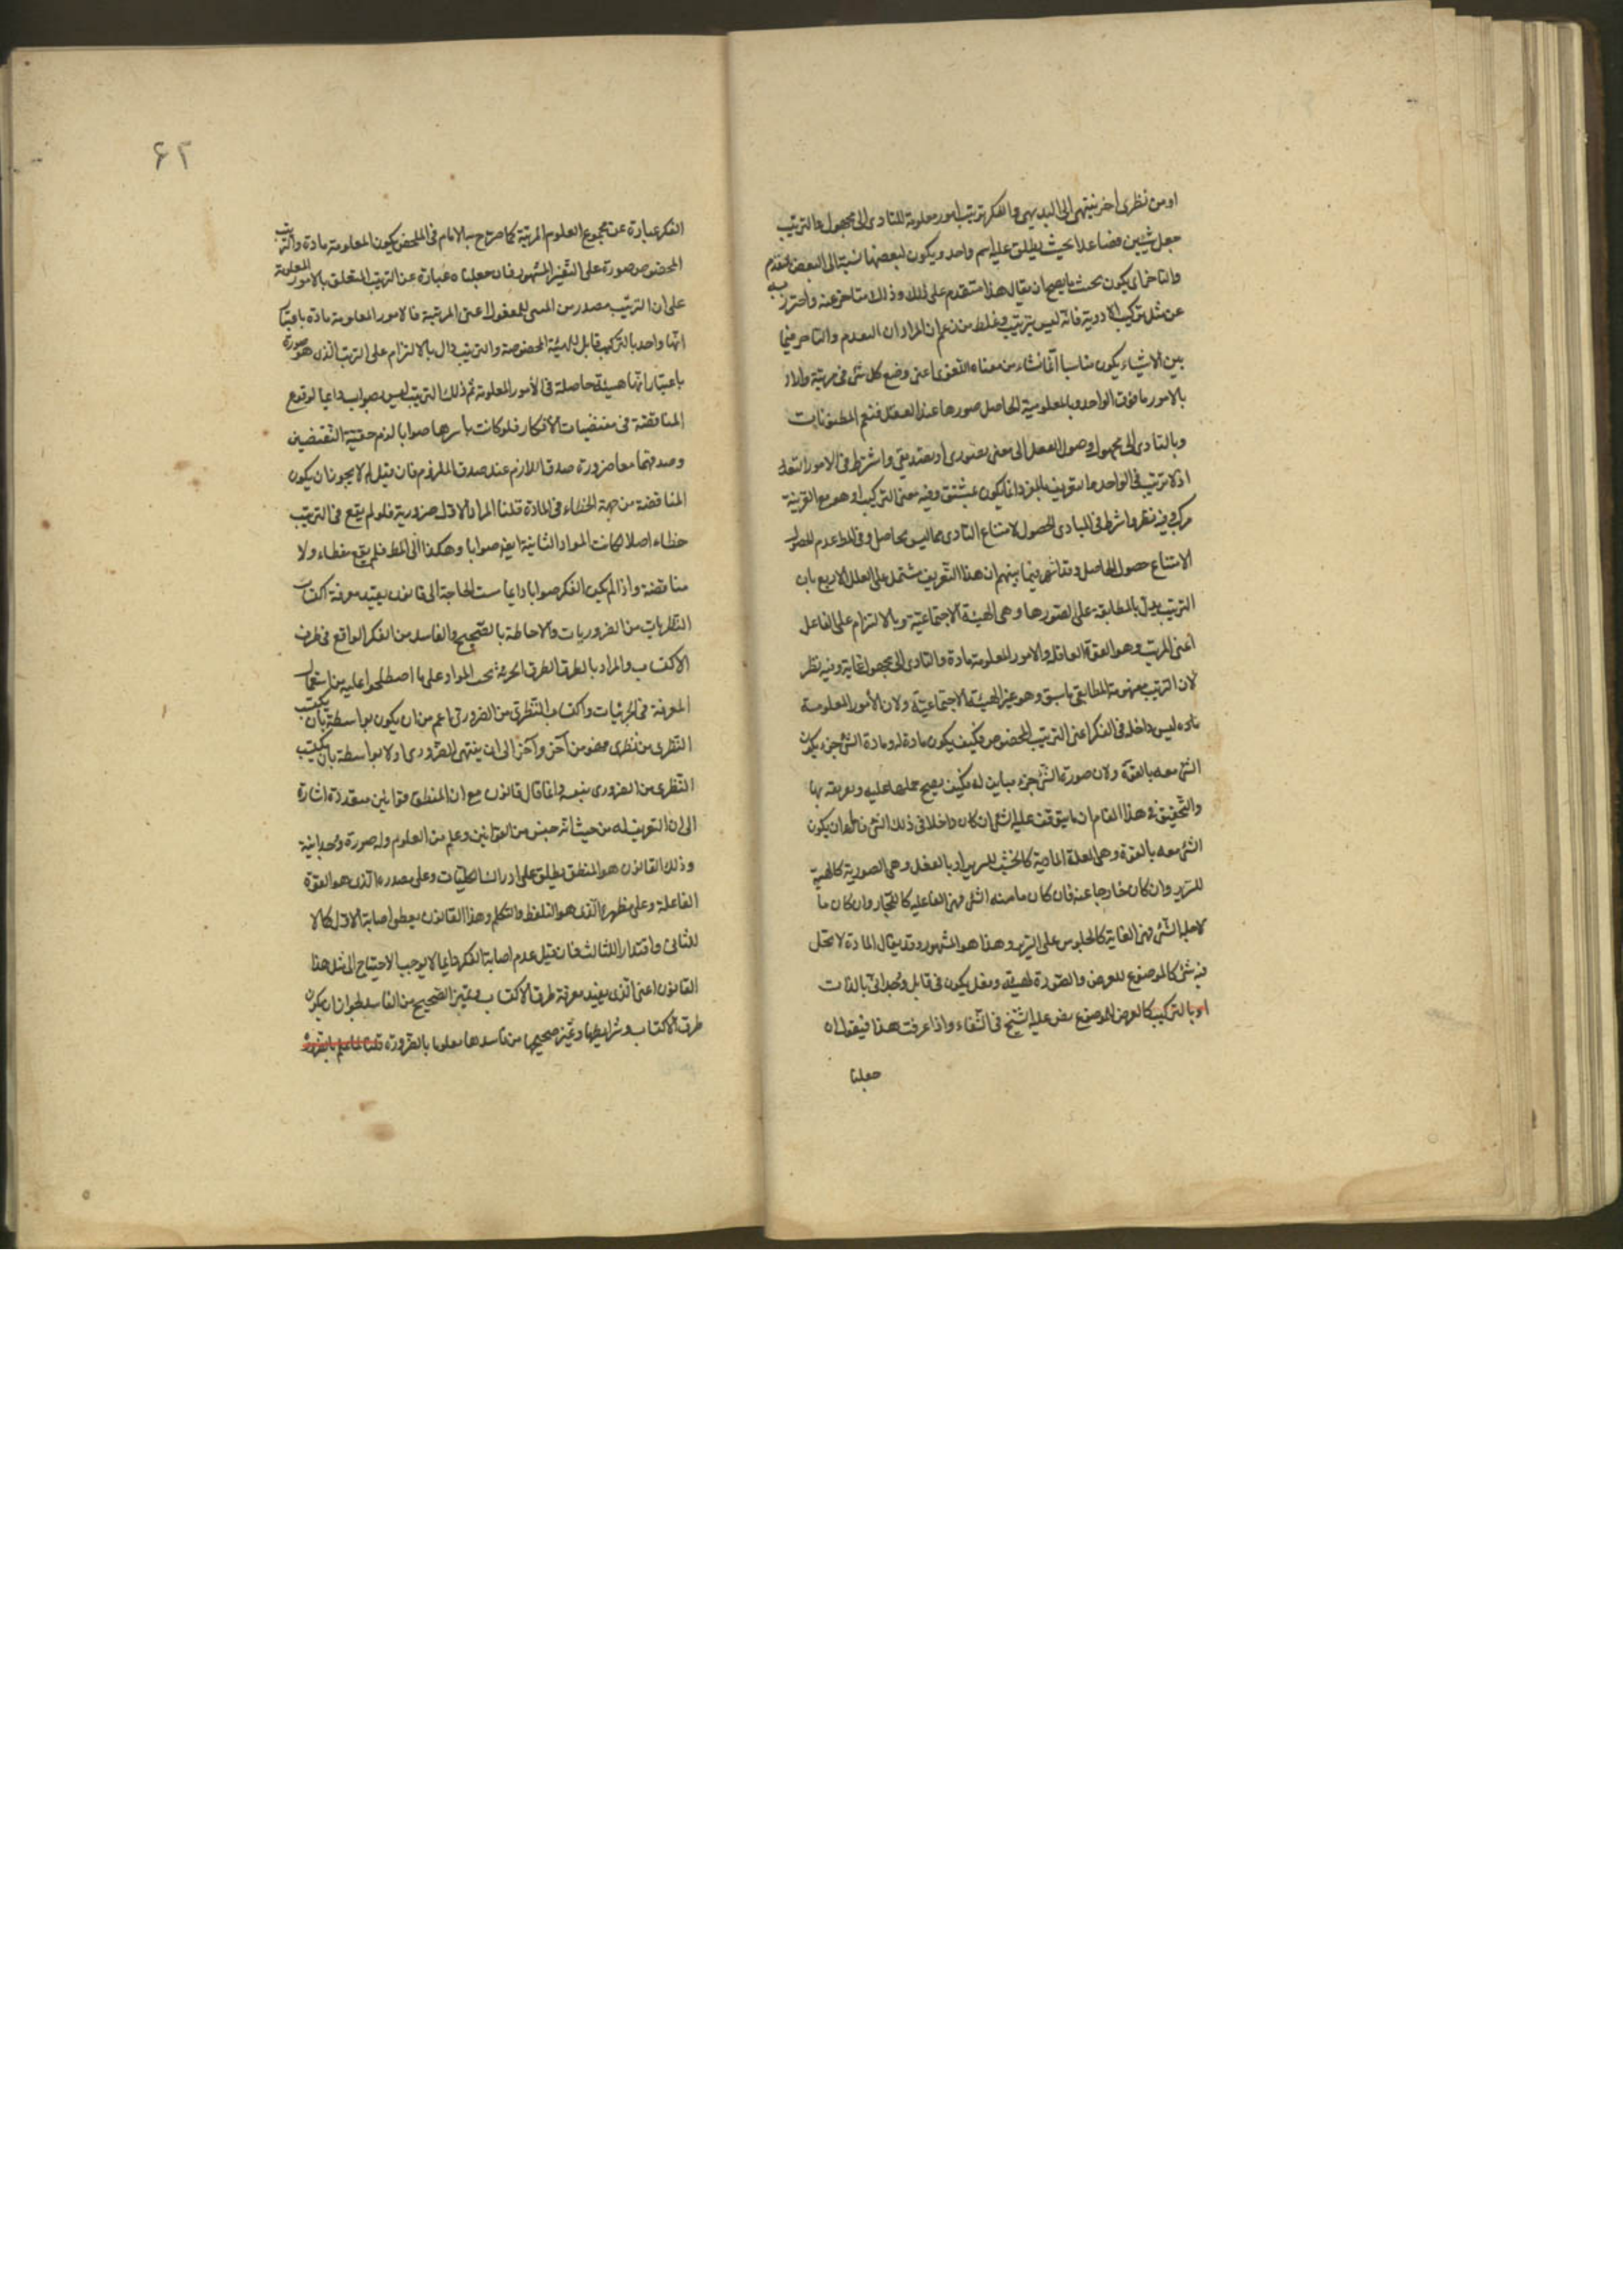 او من نظری اخر ینتهی الی البدیهی والفکر ترتیب امور معلومة للتادی الی مجهول والترتیب
جعل شیئین فصاعدا بحیث یطلق علیه اسم واحد ویکون لبعضها نسبة الی البعض بالتقدم
والتاخر ای یکون بحیث یصح ان یقال هذا متقدم علی ذلک وذلک متاخر عنه واحترز به
عن مثل ترکیب الادویة فانه لیس بترتیب وغلط من زعم ان المراد ان التقدم والتاخر فیما
بین الاشیاء یکون مناسبا انما نشاء من معناه اللغوی اعنی وضع کل شئ فی مرتبة واراد
بالامور ما فوق الواحد وبالمعلومیة الحاصل صورها عند العقل فتعم المظنونات
وبالتادی الی مجهول وصول العقل الی معنی تصوری او تصدیقی واشترط فی الامور التعدد
اذ لا ترتیب فی الواحد واما تعریف بالمفرد انما یکون بمشتق وفیه معنی الترکیب او هو مع القرینة
مرکب وفیه نظر واشترط فی المبادی الحصول لامتناع التادی مما لیس بحاصل وفی المط عدم الحصول
لامتناع حصول الحاصل وقد اشتهر فیما بینهم ان هذا التعریف مشتمل علی العلل الاربع بان
الترتیب یدل بالمطابقة علی الصورة وهی الهیئة الاجتماعیة وبالالتزام علی الفاعل
اعنی المرتب وهو القوة العاقلة والامور المعلومة مادة والتادی الی مجهول غایة وفیه نظر
لان الترتیب مفهومه المطابقی ما سبق وهو غیر الهیئة الاجتماعیة ولان الأمور المعلومة
لیس داخله فی الفکر اعنی الترتیب المخصوص فکیف یکون مادة له ومادة الشئ جزء یکون
الشئ معه بالقوة ولان صورة الشئ جزء مباین له فکیف یصح حملها علیه وتعریفه بها
والتحقیق فی هذا المقام ان ما یتوقف علیه الشئ ان کان داخلا فی ذلک الشئ فاما ان یکون
الشئ معه بالقوة وهی العلة المادیة کالخشب للسریر او بالفعل وهی الصوریة کالهیئة
للسریر وان کان خارجا عنه فان کان ما منه الشئ فهی الفاعلیة کالنجار وان کان ما
لاجله الشئ فهی الغایة کالجلوس علی السریر وهذا هو المشهور وقد یقال المادة لا تحل
فیه شئ کالموضوع للعرض والصورة لهیئة وفعل یکون فی قابل وحدانی بالذات
او بالترکیب کالعرض للموضوع نص علیه الشیخ فی الشفاء واذا عرفت هذا فیقول ان
جعلنا
۶۲
الفکر عبارة عن مجموع العلوم المرتبة کما صرّح به الامام فی الملخص یکون المعلومة مادة والترتیب
المخصوص صورة علی التفسیر المشهور فان جعلناه عبارة عن الترتیب المتعلق بالامور المعلومة
علی ان الترتیب مصدر من المبنی للمفعول اعنی المرتبة فالامور المعلومة مادة باعتبار
انها واحد بالترکیب قابل للهیئة المخصوصة والترتیب دال بالالتزام علی الترتب الذی هو صورة
باعتبار انها هیئة حاصلة فی الأمور المعلومة ثم ذلک الترتیب لیس بصواب دایما لوقوع
المناقضة فی مقتضیات الأفکار فلو کانت باسرها صوابا لزم حقیة النقیضین
وصدقهما معا ضرورة صدق اللازم عند صدق الملزوم فان قیل لم لا یجوز ان یکون
المناقضة من جهة الخطاء فی المادة قلنا المواد الاول ضروریة فلو لم یقع فی الترتیب
خطاء اصلا لکانت المواد الثانیة ایضا صوابا وهکذا الی المط فلم یقع خطاء ولا
مناقضة واذا لم یکن الفکر صوابا دایما مست الحاجة الی قانون یفید معرفة اکتساب
النظریات من الضروریات والاحاطة بالصحیح والفاسد من الفکر الواقع فی طرف
الاکتساب والمراد بالطرق الطرق الجزئیة بحسب المواد علی ما اصطلحوا علیه من استعمال
المعرفة فی الجزئیات واکتساب النظری من الضروری اعم من ان یکون بواسطة بان یکتسب
النظری من نظری وهو من آخر وآخر الی ان ینتهی الضروری او لا بواسطة بان یکتسب
النظری من الضروری بنفسه وانما قال قانون مع ان المنطق قوانین متعددة اشارة
الی ان التعریف له من حیث انه جنس من القوانین وعلم من العلوم وله صورة وحدانیة
وذلک القانون هو المنطق یطلق علی ادراک الکلیات وعلی مصدره الذی هو القوة
الفاعلة وعلی مظهره الذی هو التلفظ والتکلم وهذا القانون یعطی اصابة الاول کمالا
للثانی واقتدار اللثالث فان قیل عدم اصابة الفکر دایما لا یوجب الاحتیاج الی مثل هذا
القانون اعنی الذی یفید معرفة طرق الاکتساب وتمییز الصحیح من الفاسد لجواز ان یکون
طرق الاکتساب وشرایطها وتمیز صحیحها من فاسدها معلوما بالضرورة